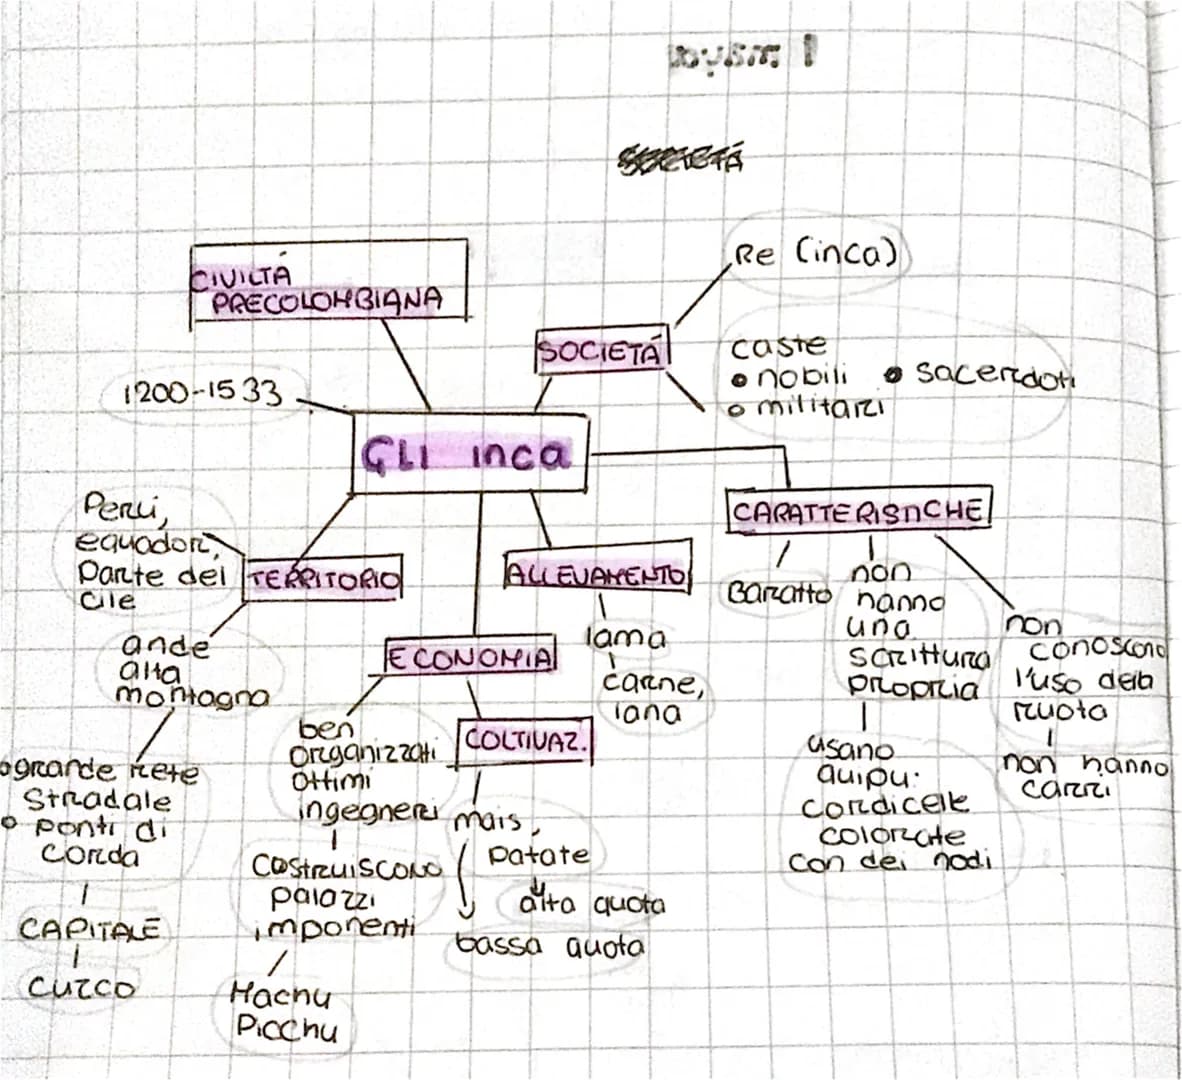 CIVILTÁ
PRECOLOMBIANA
1200-1533
SOCIETÁ
Re (inca)
caste
• nobili • sacerdoti
• militari
GLI inca
CARATTERISTICHE
Baratto
non
hanno
una
scrittura
propria
usano
quipu:
cordicelle
colorate
con dei nodi
non
conoscono
l'uso della
ruota
non hanno
carri
Perú,
equador,
parte del
cile
TERRITORIO
ande
alta
montagna
• grande rete
stradale
• ponti di
corda
CAPITALE
CUZCO
ALLEVAMENTO
lama
carne,
lana
ECONOMIA
ben
organizzati
ottimi
ingegneri
costruiscono
palazzi
imponenti
Machu
Picchu
COLTIVAZ.
mais,
patate
alta quota
bassa quota